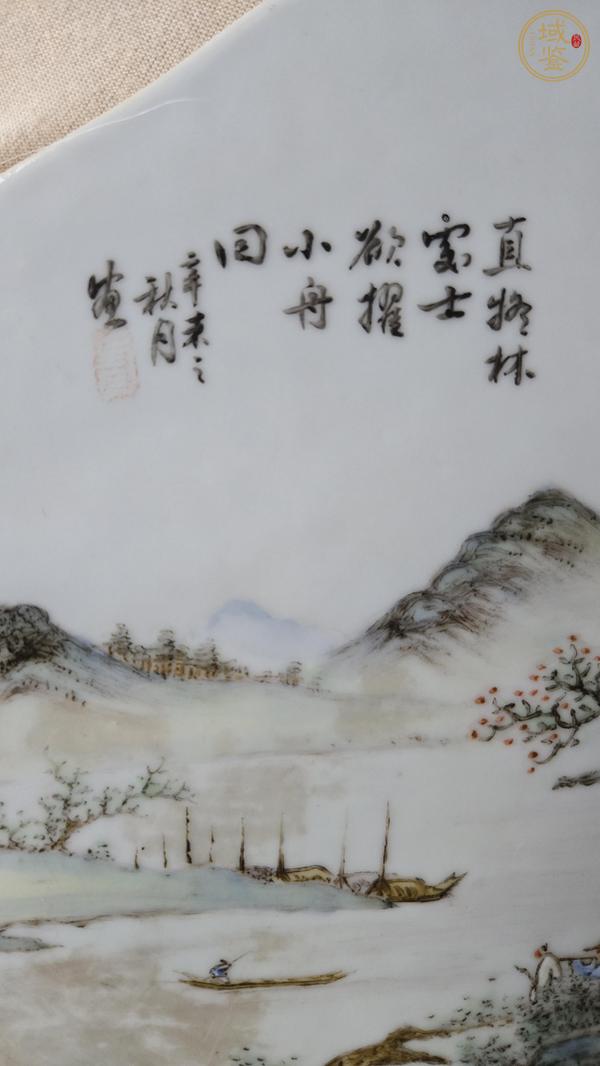 直將林
處士
欲擢
小舟
回
辛未之
秋月
畫
域鉴